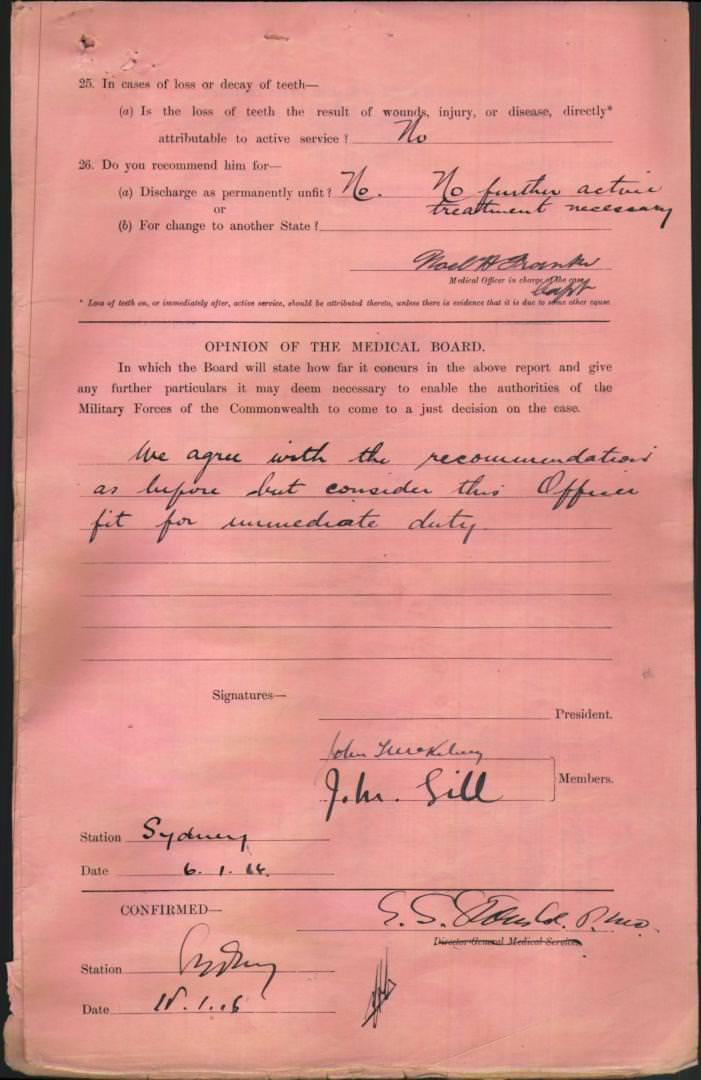 25. In cases of loss or decay of teeth—
(a) Is the loss of teeth the result of wounds, injury, or disease, directly*
attributable to active service? No
26. Do you recommend him for—
(a) Discharge as permanently unfit? No. No further active
or treatment necessary
(b) For change to another State?
Noel H
Medical Officer in charge of the case
Capt
* Loss of teeth on, or immediately after, active service, should be attributed thereto, unless there is evidence that it is due to some other cause
OPINION OF THE MEDICAL BOARD.
In which the Board will state how far it concurs in the above report and give
any further particulars it may deem necessary to enable the authorities of the
Military Forces of the Commonwealth to come to a just decision on the case.
We agree with the recommendations
as before but consider this Officer
fit for immediate duty
Signatures—
President.
John
J. M. Gill
Members.
Station Sydney
Date 6. 1.
CONFIRMED—
P.M.O.
Director-General Medical Services
Station Sydney
Date